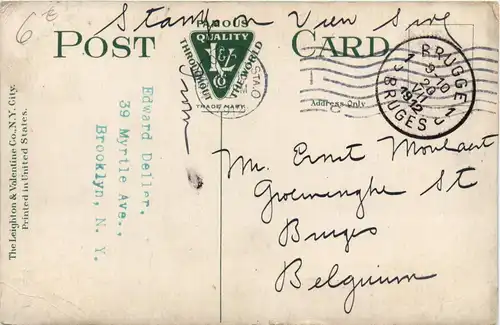 6 €
Stamp on View Side
POST CARD
FAMOUS
QUALITY
THROUGHOUT THE WORLD
L&V
Co
TRADE MARK
Address Only
BRUGGE
8-10
29
VII
1912
BRUGES
Mr. Ernst Moulaert
Groeninghe St
Bruges
Belgium
Edward Deller,
39 Myrtle Ave.,
Brooklyn, N. Y.
The Leighton & Valentine Co., N.Y. City.
Printed in United States.